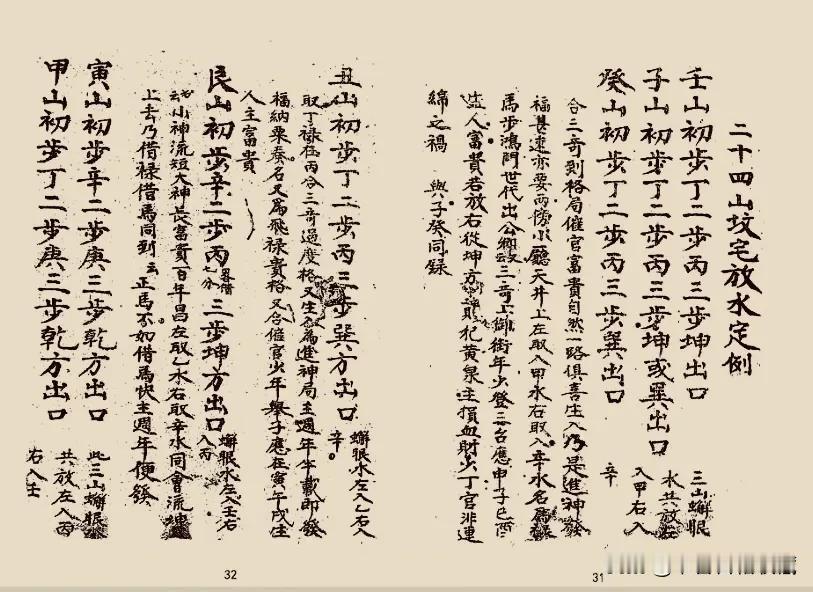 二十四山坟宅放水定例
壬山初步丁二步丙三步坤出口
子山初步丁二步丙三步坤或巽出口
癸山初步丁二步丙三步巽出口
三山蠏眼
水共放左
入甲右入
辛
合三奇则格局催官富貴自然一路俱喜生入乃是進神發
福甚速亦要两傍小廳天井上左取入甲水右取入辛水名為祿
馬步鴻門世代出公卿云三奇上御街年少登三台應申子巳酉
益人富貴若放右從坤方則犯黄泉主損血財少丁官非連
綿之禍 與子癸同録
丑山初步丁二步丙三步巽方出口
蠏眼水左入乙右入
辛。
取丁祿在丙合三奇過度格又生為進神局主週年半載即發
福納粟奏名又為飛禄貴格又合催官少年舉子應在寅午戌生
人主富貴
艮山初步辛二步丙 三步坤方出口
蠏眼水左入壬右
入丙
云小神流短大神長富貴百年昌左取乙水右取辛水同會流
上去乃借禄借馬同到云正馬不如借馬快主週年便發
寅山初步辛二步庚三步乾方出口
甲山初步丁二步庚三步乾方出口
此三山蠏眼
共放左入丙
右入壬
31
32